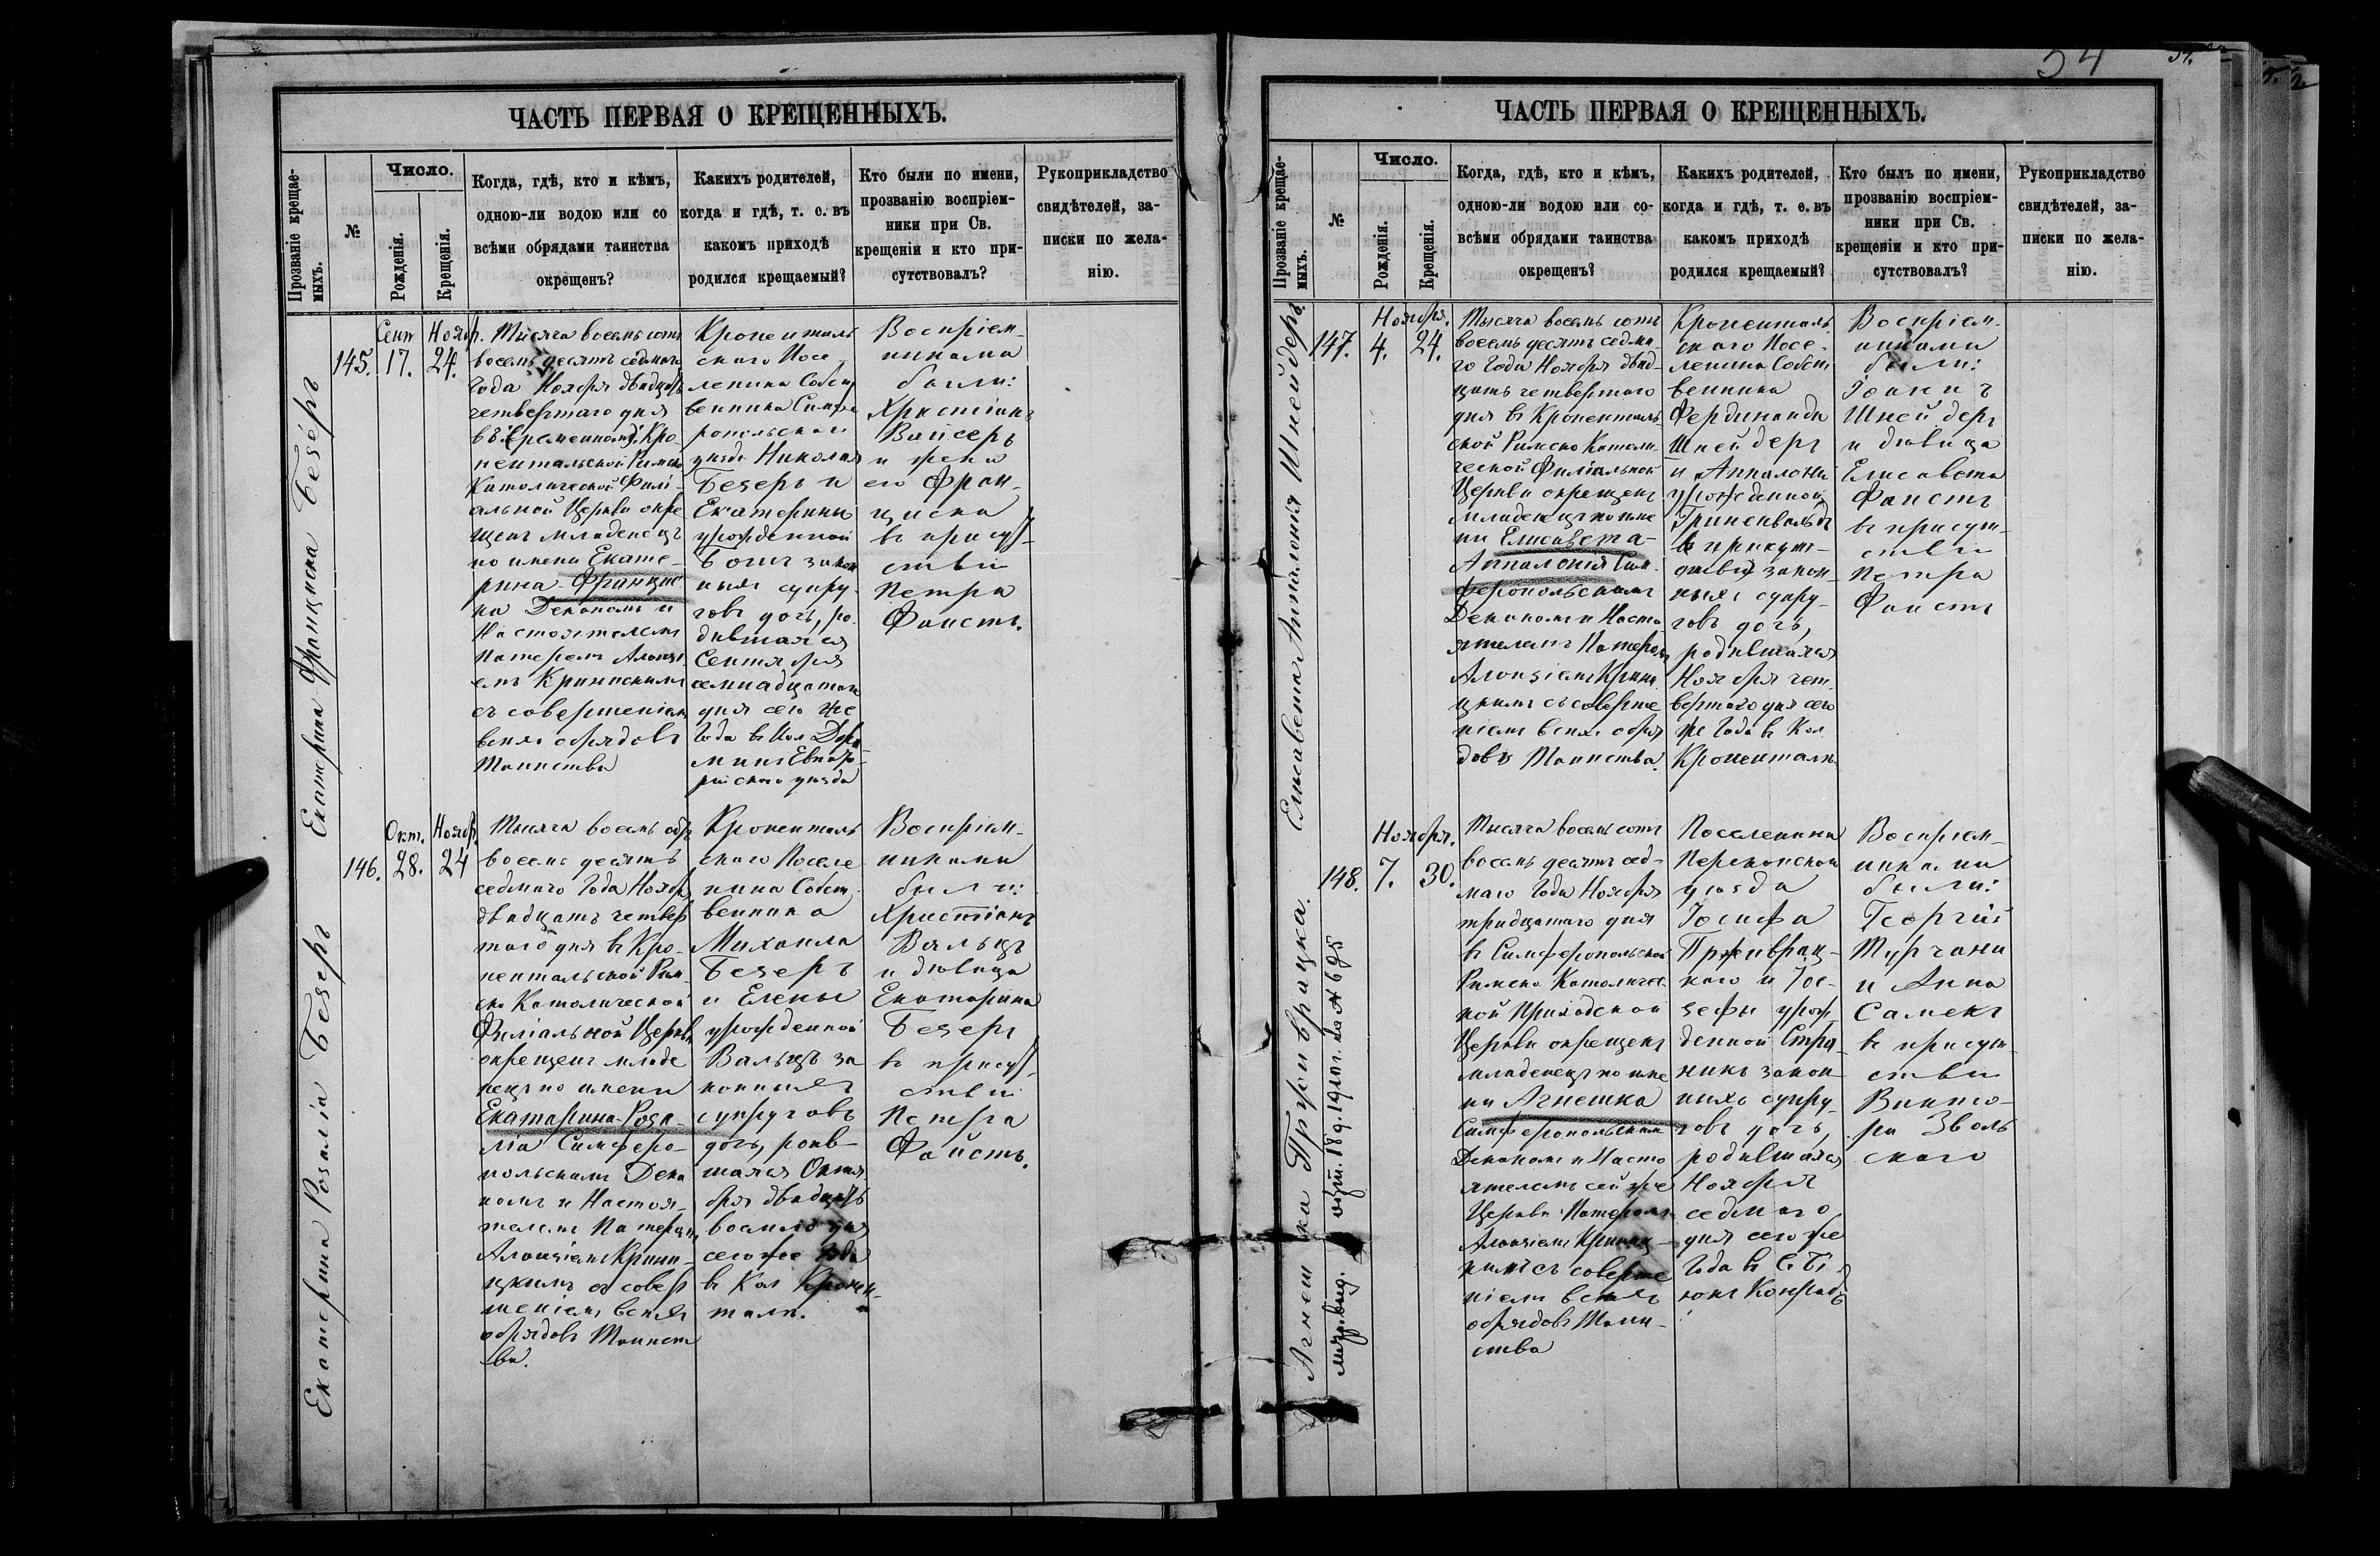 54
ЧАСТЬ ПЕРВАЯ О КРЕЩЕННЫХЪ.
Прозваніе крещае-
мыхъ.
№
Число.
Рожденія.
Крещенія.
Когда, гдѣ, кто и кѣмъ,
одною-ли водою или со
всѣми обрядами таинства
окрещенъ?
Какихъ родителей,
когда и гдѣ, т. е. въ
какомъ приходѣ
родился крещаемый?
Кто были по имени,
прозванію воспріем-
ники при Св.
крещеніи и кто при-
сутствовалъ?
Рукоприкладство
свидѣтелей, за-
писки по жела-
нію.
Екатерина Франциска Безеръ
145.
Сент
17.
Нояб.
24.
Тысяча восемь сотъ
восемь десятъ седмаго
Года Ноября двадцать
четвертаго дня
въ временной Кро
нентальской Римско
Католической Филі-
альной Церкви окре
щенъ младенецъ
по имени Екате-
рина Францис
ка Деканомъ и
Настоятелемъ
Патеромъ Алоизі
емъ
съ совершеніемъ
всехъ обрядовъ
Таинства
Кроненталь
скаго Посе
ленина Собст
венника Симфе
ропольскаго
уезда Николая
Безеръ и
Екатерины
урожденной
закон
ныхъ супру
говъ дочь, ро
дившаяся
Сентября
семнадцатаго
дня сего же
Года въ Кол
Евпато-
рійскаго уезда
Воспріем-
никами
были:
Христіанъ
Вайсеръ
и жена
его Фран-
циска
въ присут-
ствіи
Петра
Фаистъ.
Екатерина Розалія Безеръ
146.
Окт.
28.
Нояб.
24
Тысяча восемь сотъ
восемь десятъ
седмаго Года Нояб
двадцать четвер
таго дня въ Кро-
нентальской Рим
ско Католической
Филіальной Церкви
окрещенъ младе
нецъ по имени
Екатарина-Роза-
лія Симферо-
польскимъ Дека
номъ и Настоя-
телемъ Патеромъ
Алоизіемъ
цкимъ съ совер
шеніемъ всехъ
обрядовъ Таинст
ва.
Кроненталь
скаго Поселе
нина Собст
венника
Михаила
Безеръ
и Елены
урожденной
Вальцъ за
конныхъ
супруговъ
дочь, родив-
шаяся Октя
бря двадцать
восмаго дня
сего же Года
въ Кол Кронен-
таль.
Воспріем-
никами
были:
Христіанъ
Вальцъ
и дѣвица
Екатарина
Безеръ
въ присут-
ствіи
Петра
Файстъ.
ЧАСТЬ ПЕРВАЯ О КРЕЩЕННЫХЪ.
Прозваніе крещае-
мыхъ.
№
Число.
Рожденія.
Крещенія.
Когда, гдѣ, кто и кѣмъ,
одною-ли водою или со-
всѣми обрядами таинства
окрещенъ?
Какихъ родителей,
когда и гдѣ, т. е. въ
какомъ приходѣ
родился крещаемый?
Кто былъ по имени,
прозванію воспріем-
ники при Св.
крещеніи и кто при-
сутствовалъ?
Рукоприкладство
свидѣтелей, за-
писки по жела-
нію.
Елисавета Аппалонія Шнейдеръ.
147.
Ноября.
4.
24.
Тысяча восемь сотъ
восемь десятъ седма-
го Года Ноября двад-
цать четвертаго
дня въ Кроненталь
ской Римско Католи
ческой Филіальной
Церкви окрещенъ
младенецъ по име
ни Елисавета-
Аппалонія Сим-
феропольскимъ
Деканомъ и Насто
ятелемъ Патеромъ
Алоизіемъ
цкимъ съ соверше
ніемъ всехъ обря
довъ Таинства.
Кроненталь
скаго Посе-
ленина Собст
венника
Фердинанда
Шнейдеръ
и Аппалоніи
урожденной
Гриненвальдъ
закон-
ныхъ супру-
говъ дочь,
родившаяся
Ноября чет-
вертаго дня сего
же Года въ Кол
Кроненталь.
Воспріем-
никами
были:
Іоаннъ
Шнейдеръ
и дѣвица
Елисавета
Фаистъ
въ присут-
ствіи
Петра
Фаистъ
Агнешка Прживрацка.
148.
Ноября.
7.
30.
Тысяча восемь сотъ
восемь десятъ сед-
маго Года Ноября
тридцатаго дня
въ Симферопольской
Римско Католичес
кой Приходской
Церкви окрещенъ
младенецъ по име
ни Агнешка
Симферопольскимъ
Деканомъ и Насто
ятелемъ сей же
Церкви Патеромъ
Алоизіемъ
кимъ съ соверше
ніемъ всехъ
обрядовъ Таин-
ства
Поселенина
Перекопскаго
уезда
Іосифа
Прживрац-
каго и Іо-
зефы урож
денной
закон
ныхъ супру-
говъ дочь,
родившаяся
Ноября
седмаго
дня сего же
Года въ С. Бі
юкъ Конрадъ
Воспріем-
никами
были:
Георгій
Турчани
и Анна
Самекъ
въ присут-
ствіи
Викто-
ра Зволь
скаго